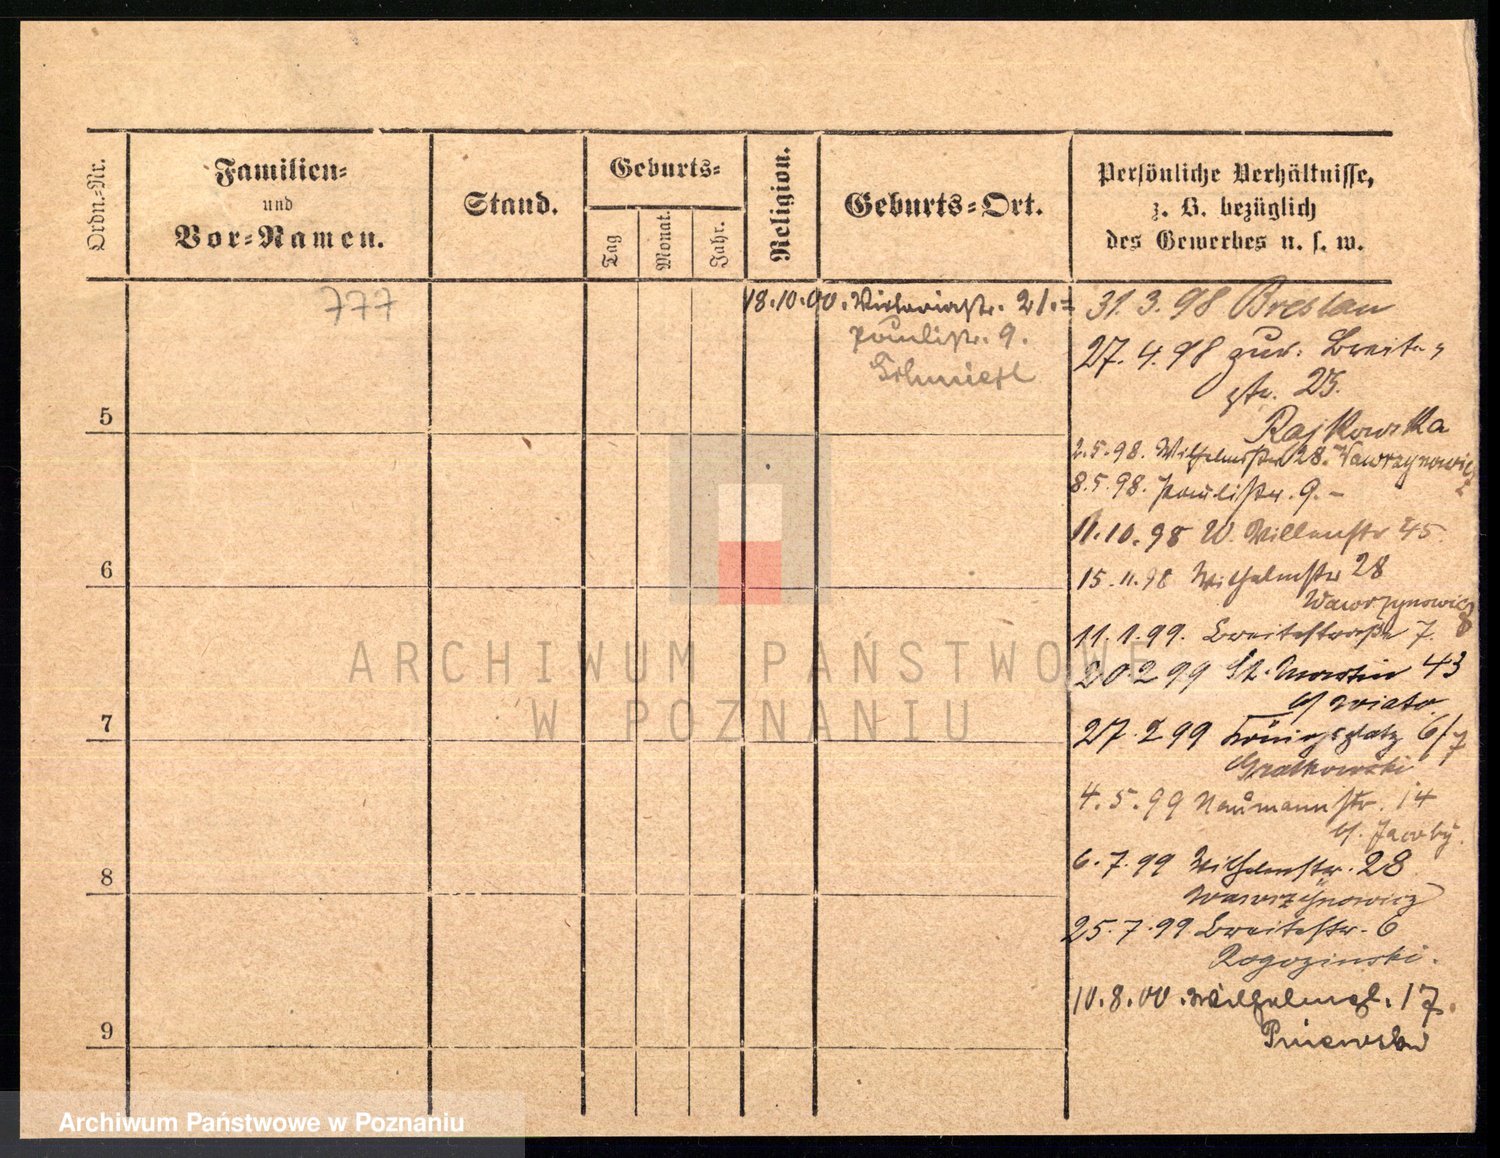 Ordn.-Nr.
Familien-
und
Vor-Namen.
Stand.
Geburts-
Tag
Monat.
Jahr.
Religion.
Geburts-Ort.
Persönliche Verhältnisse,
z. B. bezüglich
des Gewerbes u. s. w.
777
18.10.00. Victoriastr. 21.
Paulistr. 9.
31.3.98 Breslau
27.4.98 zur. Breite-
str. 25.
Rajkowska
2.5.98. Wilhelmstr 28. Wawrzynowicz
8.5.98. Paulistr. 9. –
11.10.98 W. Villenstr 45
15.11.98 Wilhelmstr 28
Wawrzynowicz
11.1.99. Breitestraße 7.
20.2.99 St. Martin 43
27.2.99 Königsplatz 6/7
Gralkowski
4.5.99 Naumannstr. 14
b/. Jacoby.
6.7.99 Wilhelmstr. 28
Wawrzynowicz
25.7.99 Breitestr. 6
Rogozinski.
10.8.00. Wilhelmpl. 17.
5
6
7
8
9
ARCHIWUM PAŃSTWOWE
W POZNANIU
Archiwum Państwowe w Poznaniu